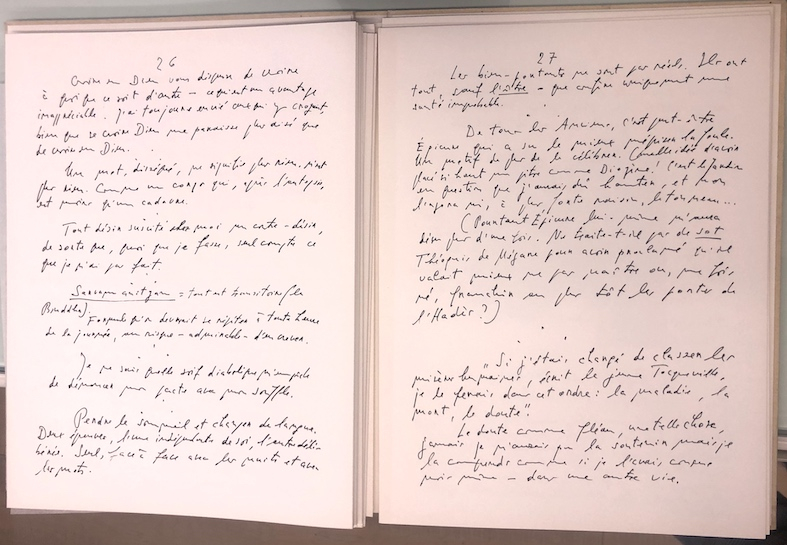 26
Croire en Dieu vous dispense de croire
à quoi que ce soit d'autre – ce qui est un avantage
inappréciable. J'ai toujours envié ceux qui y croyaient,
bien que se croire Dieu me paraisse plus aisé que
de croire en Dieu.
Un mot, disséqué, ne signifie plus rien, n'est
plus rien. Comme un corps qui, après l'autopsie,
est moins qu'un cadavre.
Tout désir suscite chez moi un contre-désir,
de sorte que, quoi que je fasse, seul compte ce
que je n'ai pas fait.
Sarvam anityam = tout est transitoire (le
Bouddha).
Formule qu'on devrait se répéter à toute heure
de la journée, au risque – admirable – d'en crever.
Je ne sais quelle soif diabolique m'empêche
de dénoncer mon pacte avec mon souffle.
Perdre le sommeil et changer de langue.
Deux épreuves, l'une indépendante de soi, l'autre déli-
bérée. Seul, face à face avec les nuits et avec
les mots.
27
Les bien-portants ne sont pas réels. Ils ont
tout, sauf l'être – que confère uniquement une
santé improbable.
De tous les Anciens, c'est peut-être
Épicure qui a su le mieux mépriser la foule.
Un motif de plus de le célébrer. Quelle idée d'avoir
placé si haut un pitre comme Diogène! C'est le Jardin
en question que j'aurais dû hanter, et non
l'agora ni, à plus forte raison, le tonneau...
(Pourtant Épicure lui-même m'aura
déçu plus d'une fois. Ne traite-t-il pas de sot
Théognis de Mégare pour avoir proclamé qu'il
valait mieux ne pas naître ou, une fois
né, franchir au plus tôt les portes de
l'Hadès?)
"Si j'étais chargé de classer les
misères humaines, écrit le jeune Tocqueville,
je le ferais dans cet ordre: la maladie, la
mort, le doute".
Le doute comme fléau, une telle chose,
jamais je n'aurais pu la soutenir mais je
la comprends comme si je l'avais
moi-même – dans une autre vie.